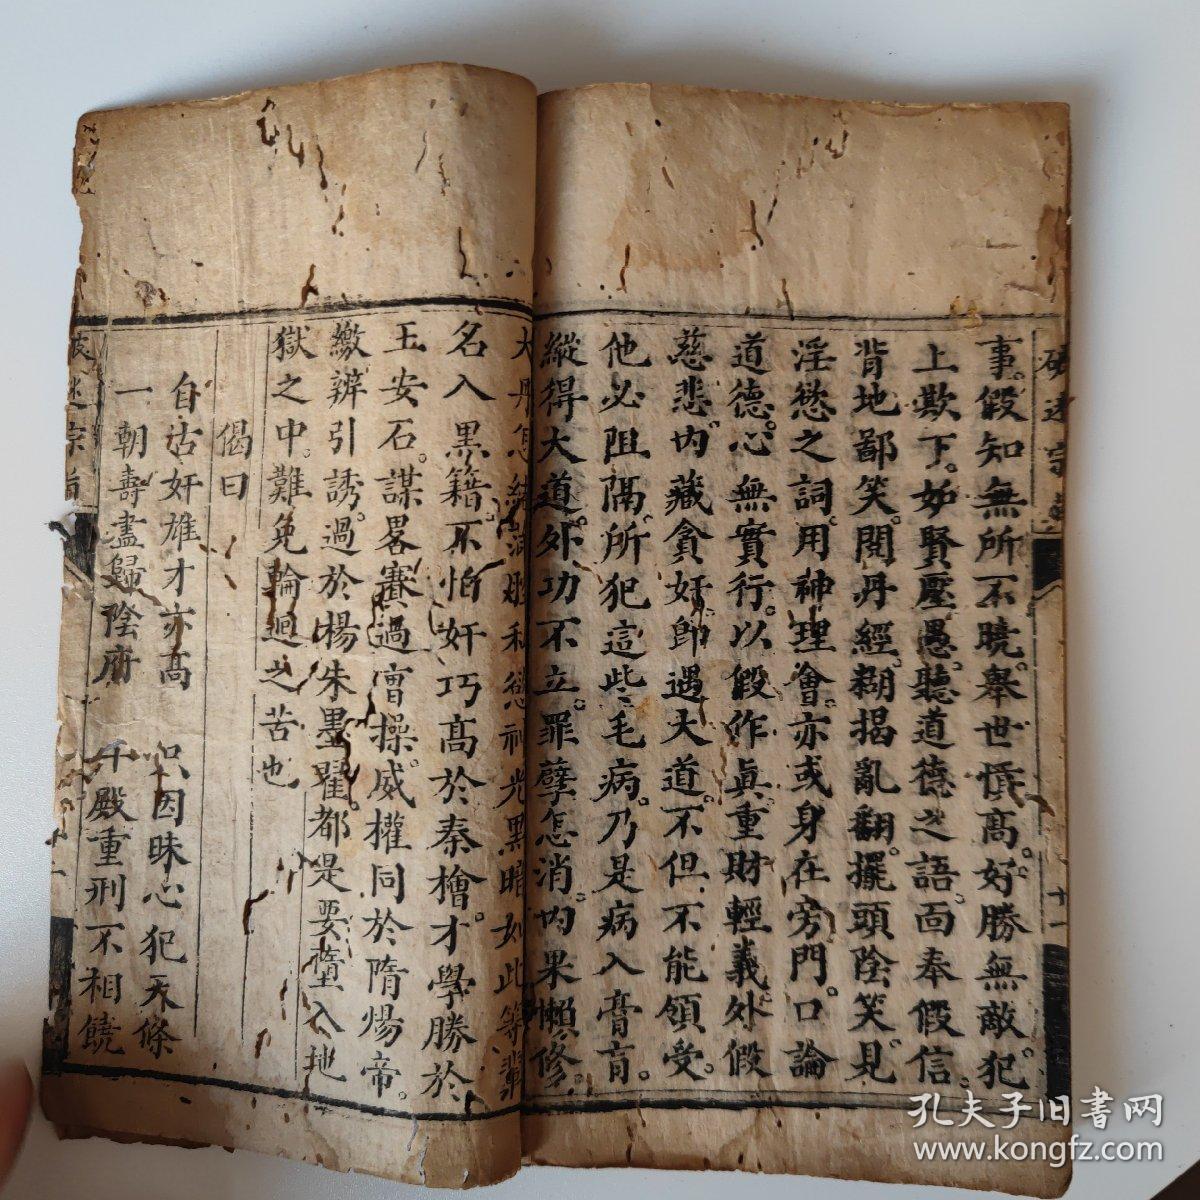 事。假知無所不曉。舉世情高。好勝無敵。犯
上欺下。妒賢壓愚。聽道德之語。面奉假信。
背地鄙笑。閱丹經。糊揭亂翻。擺頭陰笑。見
淫慾之詞。用神理會。亦或身在旁門。口論
道德。心無實行。以假作眞。重財輕義。外假
慈悲。内藏貪奸。卽遇大道。不但不能領受。
他必阻隔。所犯這些毛病。乃是病入膏肓。
縱得大道。外功不立。罪孽怎消。内果懶修。
大丹怎結。慾神光黑暗如此等輩
名入黑籍。不怕奸巧高於秦檜。才學勝於
王安石。謀畧賽過曹操。威權同於隋煬帝。
繳辨引誘。過於楊朱墨翟。都是要墮入地
獄之中。難免輪迴之苦也
偈曰
自古奸雄才亦高 只因昧心犯天條
一朝壽盡歸陰府 十殿重刑不相饒
迷宗
十一
孔夫子旧書网
www.kongfz.com